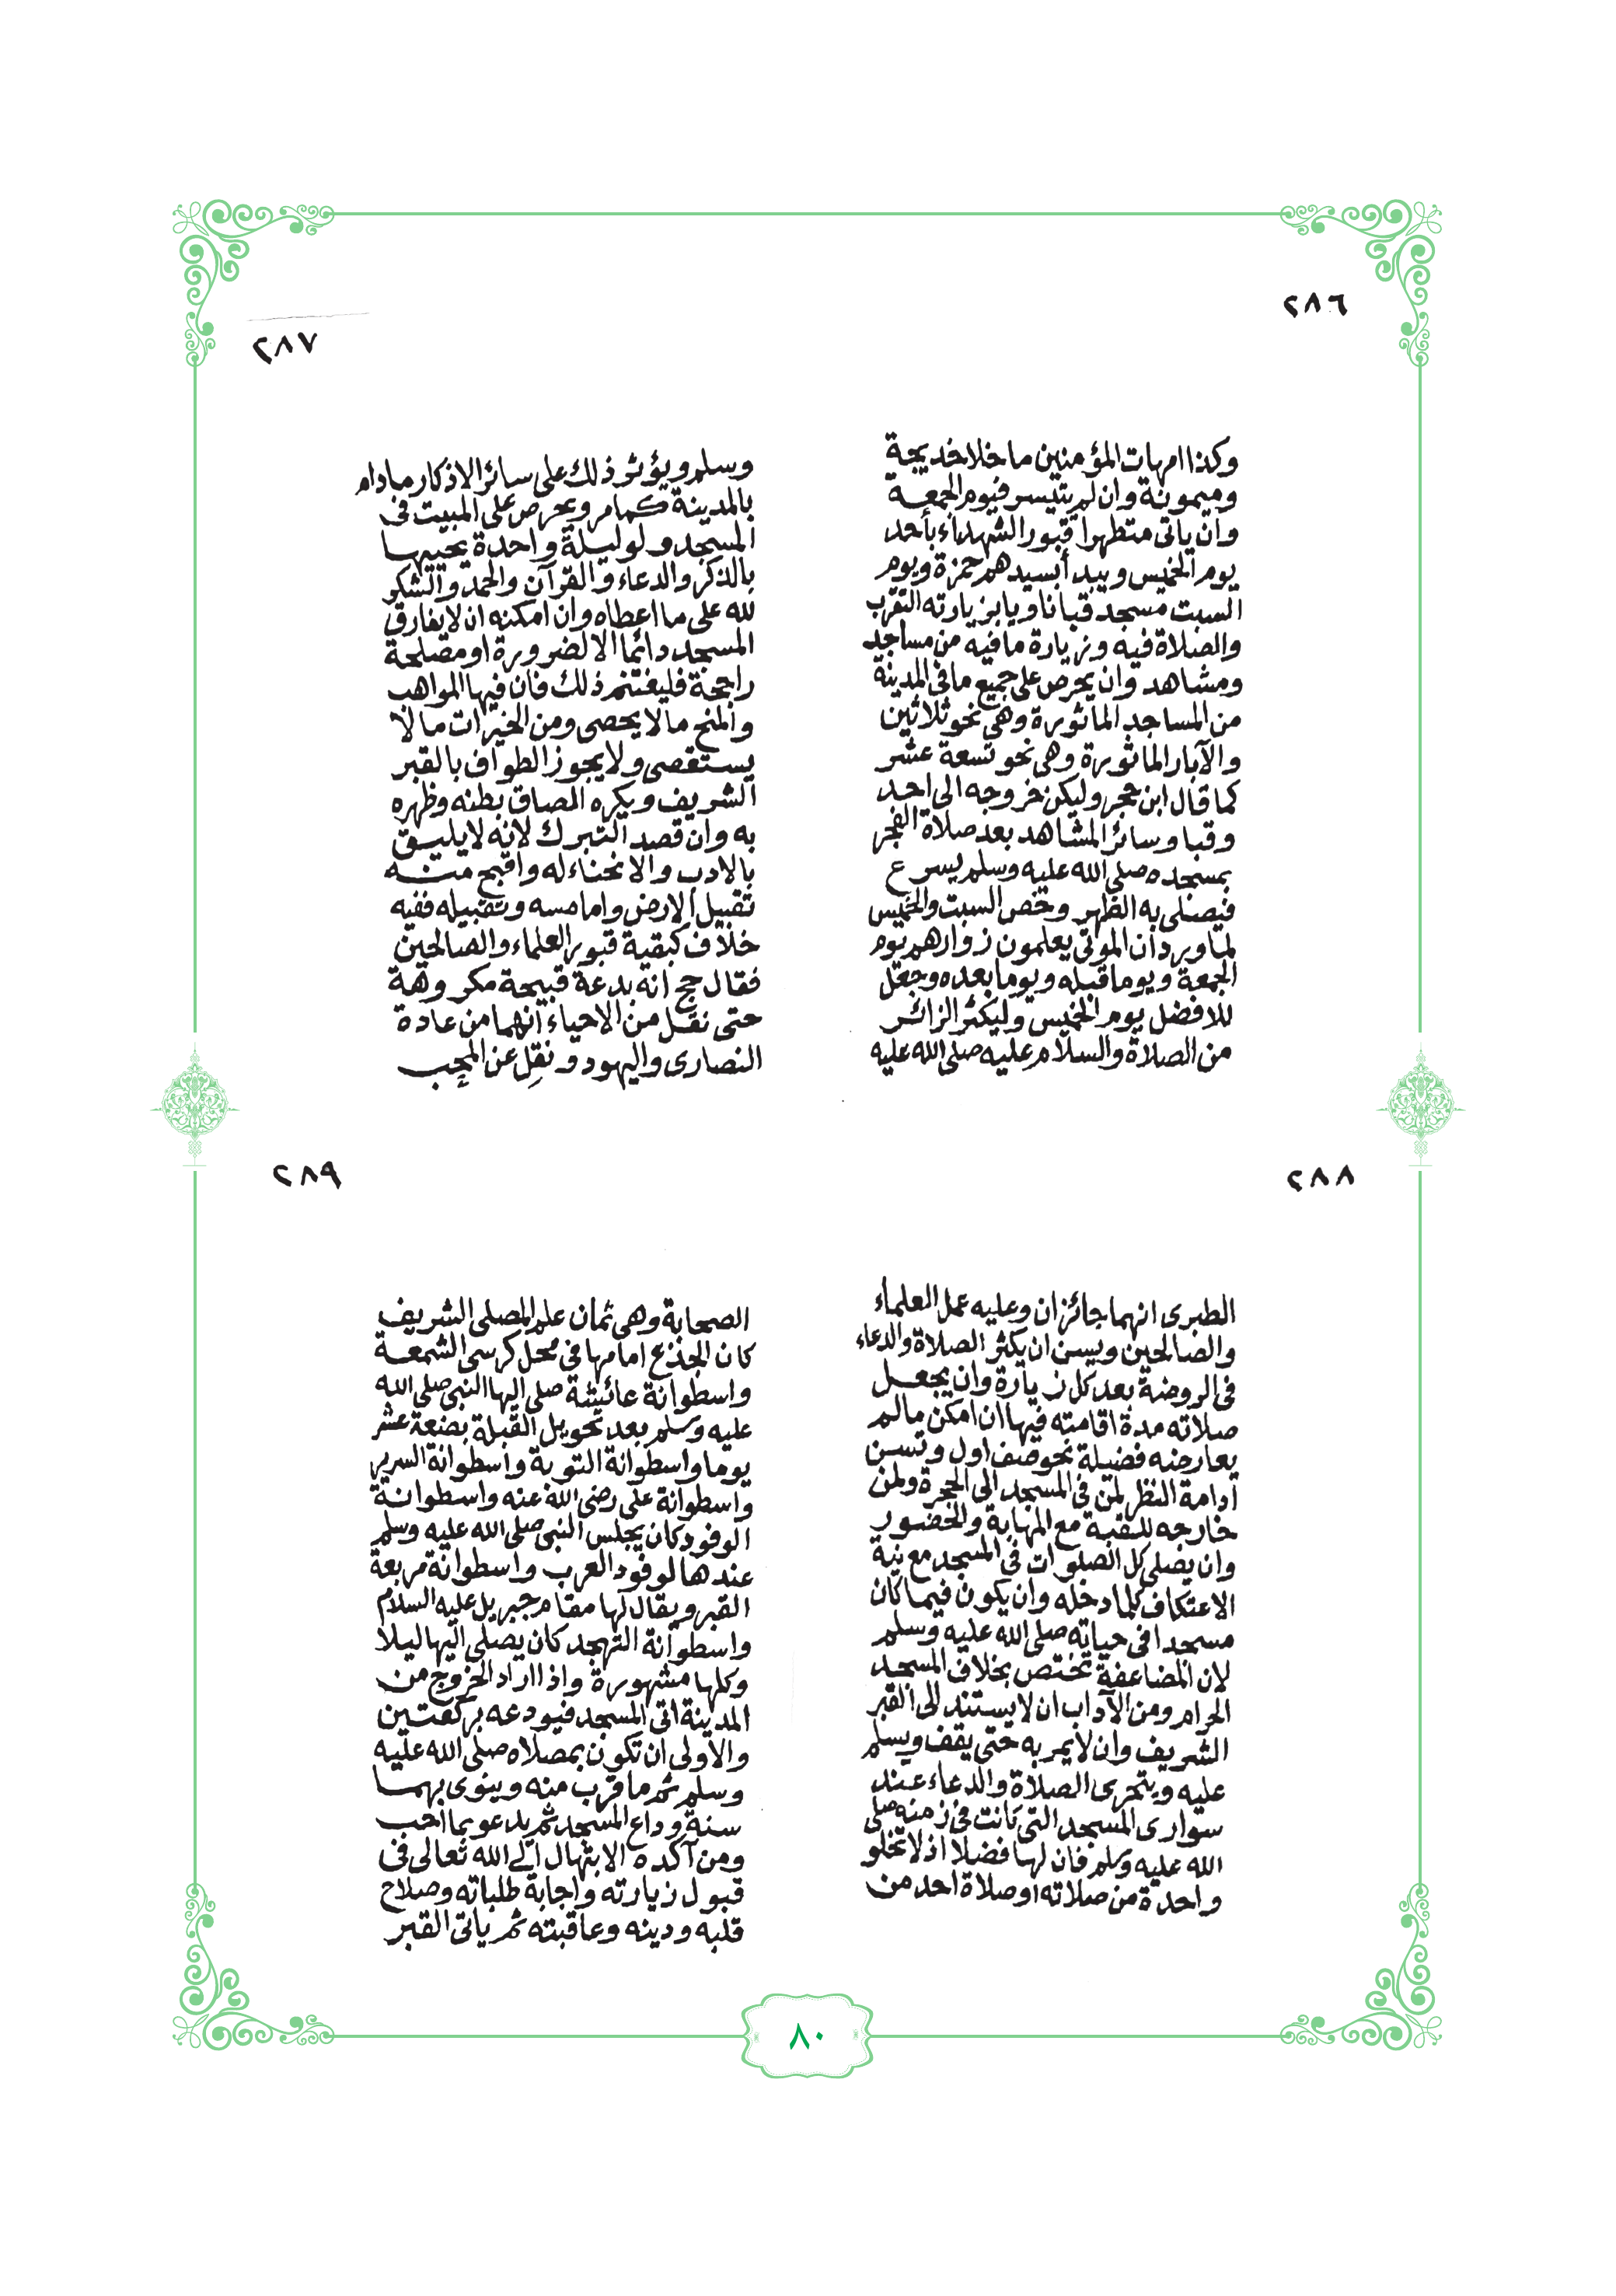 ٢٨٦
وكذا امهات المؤمنين ما خلا خديجة
وميمونة وان لم يتيسر فيوم الجمعة
وان ياتى متطهرا قبور الشهداء بأحد
يوم الخميس ويبدأ بسيدهم حمزة ويوم
السبت مسجد قبا ناويا بزيارته التقرب
والصلاة فيه وزيارة ما فيه من مساجد
ومشاهد وان يحرص على جميع ما فى المدينة
من المساجد الماثورة وهى نحو ثلاثين
والآبار الماثورة وهى نحو تسعة عشر
كما قال ابن حجر وليكن خروجه الى احد
وقبا وسائر المشاهد بعد صلاة الفجر
بمسجده صلى الله عليه وسلم يسرع
فيصلى به الظهر وخص السبت والخميس
لما ورد ان الموتى يعلمون زوارهم يوم
الجمعة ويوما قبله ويوما بعده وجعل
للافضل يوم الخميس وليكثر الزائر
من الصلاة والسلام عليه صلى الله عليه
٢٨٧
وسلم ويؤثر ذلك على سائر الاذكار ما دام
بالمدينة كما مر ويحرص على المبيت فى
المسجد ولو ليلة واحدة يحييها
بالذكر والدعاء والقرآن والحمد والشكر
لله على ما اعطاه وان امكنه ان لا يفارق
المسجد دائما الا لضرورة او مصلحة
راجحة فليغتنم ذلك فان فيها المواهب
والمنح ما لا يحصى ومن الخيرات ما لا
يستقصى ولا يجوز الطواف بالقبر
الشريف ويكره الصاق بطنه وظهره
به وان قصد التبرك لانه لا يليق
بالادب والانحناء له واقبح منه
تقبيل الارض واما مسه وتقبيله ففيه
خلاف كبقية قبور العلماء والصالحين
فقال حج انه بدعة قبيحة مكروهة
حتى نقل من الاحياء انهما من عادة
النصارى واليهود ونقل عن المحب
٢٨٨
الطبرى انهما جائزان وعليه عمل العلماء
والصالحين ويسن ان يكثر الصلاة والدعاء
فى الروضة بعد كل زيارة وان يجعل
صلاته مدة اقامته فيها ان امكن ما لم
يعارضه فضيلة نحو صف اول وتسن
ادامة النظر لمن فى المسجد الى الحجرة ولمن
خارجه للقبة مع المهابة والحضور
وان يصلى كل الصلوات فى المسجد مع نية
الاعتكاف كلما دخله وان يكون فيما كان
مسجدا فى حياته صلى الله عليه وسلم
لان المضاعفة تختص بخلاف المسجد
الحرام ومن الآداب ان لا يستند الى القبر
الشريف وان لا يمر به حتى يقف ويسلم
عليه ويتحرى الصلاة والدعاء عند
سوارى المسجد التى كانت فى زمنه صلى
الله عليه وسلم فان لها فضلا اذ لا تخلو
واحدة من صلاته او صلاة احد من
٢٨٩
الصحابة وهى ثمان علم المصلى الشريف
كان الجذع امامها فى محل كرسى الشمعة
واسطوانة عائشة صلى اليها النبى صلى الله
عليه وسلم بعد تحويل القبلة بضعة عشر
يوما واسطوانة التوبة واسطوانة السرير
واسطوانة على رضى الله عنه واسطوانة
الوفود كان يجلس النبى صلى الله عليه وسلم
عندها لوفود العرب واسطوانة مربعة
القبر ويقال لها مقام جبريل عليه السلام
واسطوانة التهجد كان يصلى اليها ليلا
وكلها مشهورة واذا اراد الخروج من
المدينة اتى المسجد فيودعه بركعتين
والاولى ان تكون بمصلاه صلى الله عليه
وسلم ثم ما قرب منه وينوى بهما
سنة وداع المسجد ثم يدعو بما احب
ومن آكده الابتهال الى الله تعالى فى
قبول زيارته واجابة طلباته وصلاح
قلبه ودينه وعاقبته ثم ياتى القبر
٨٠